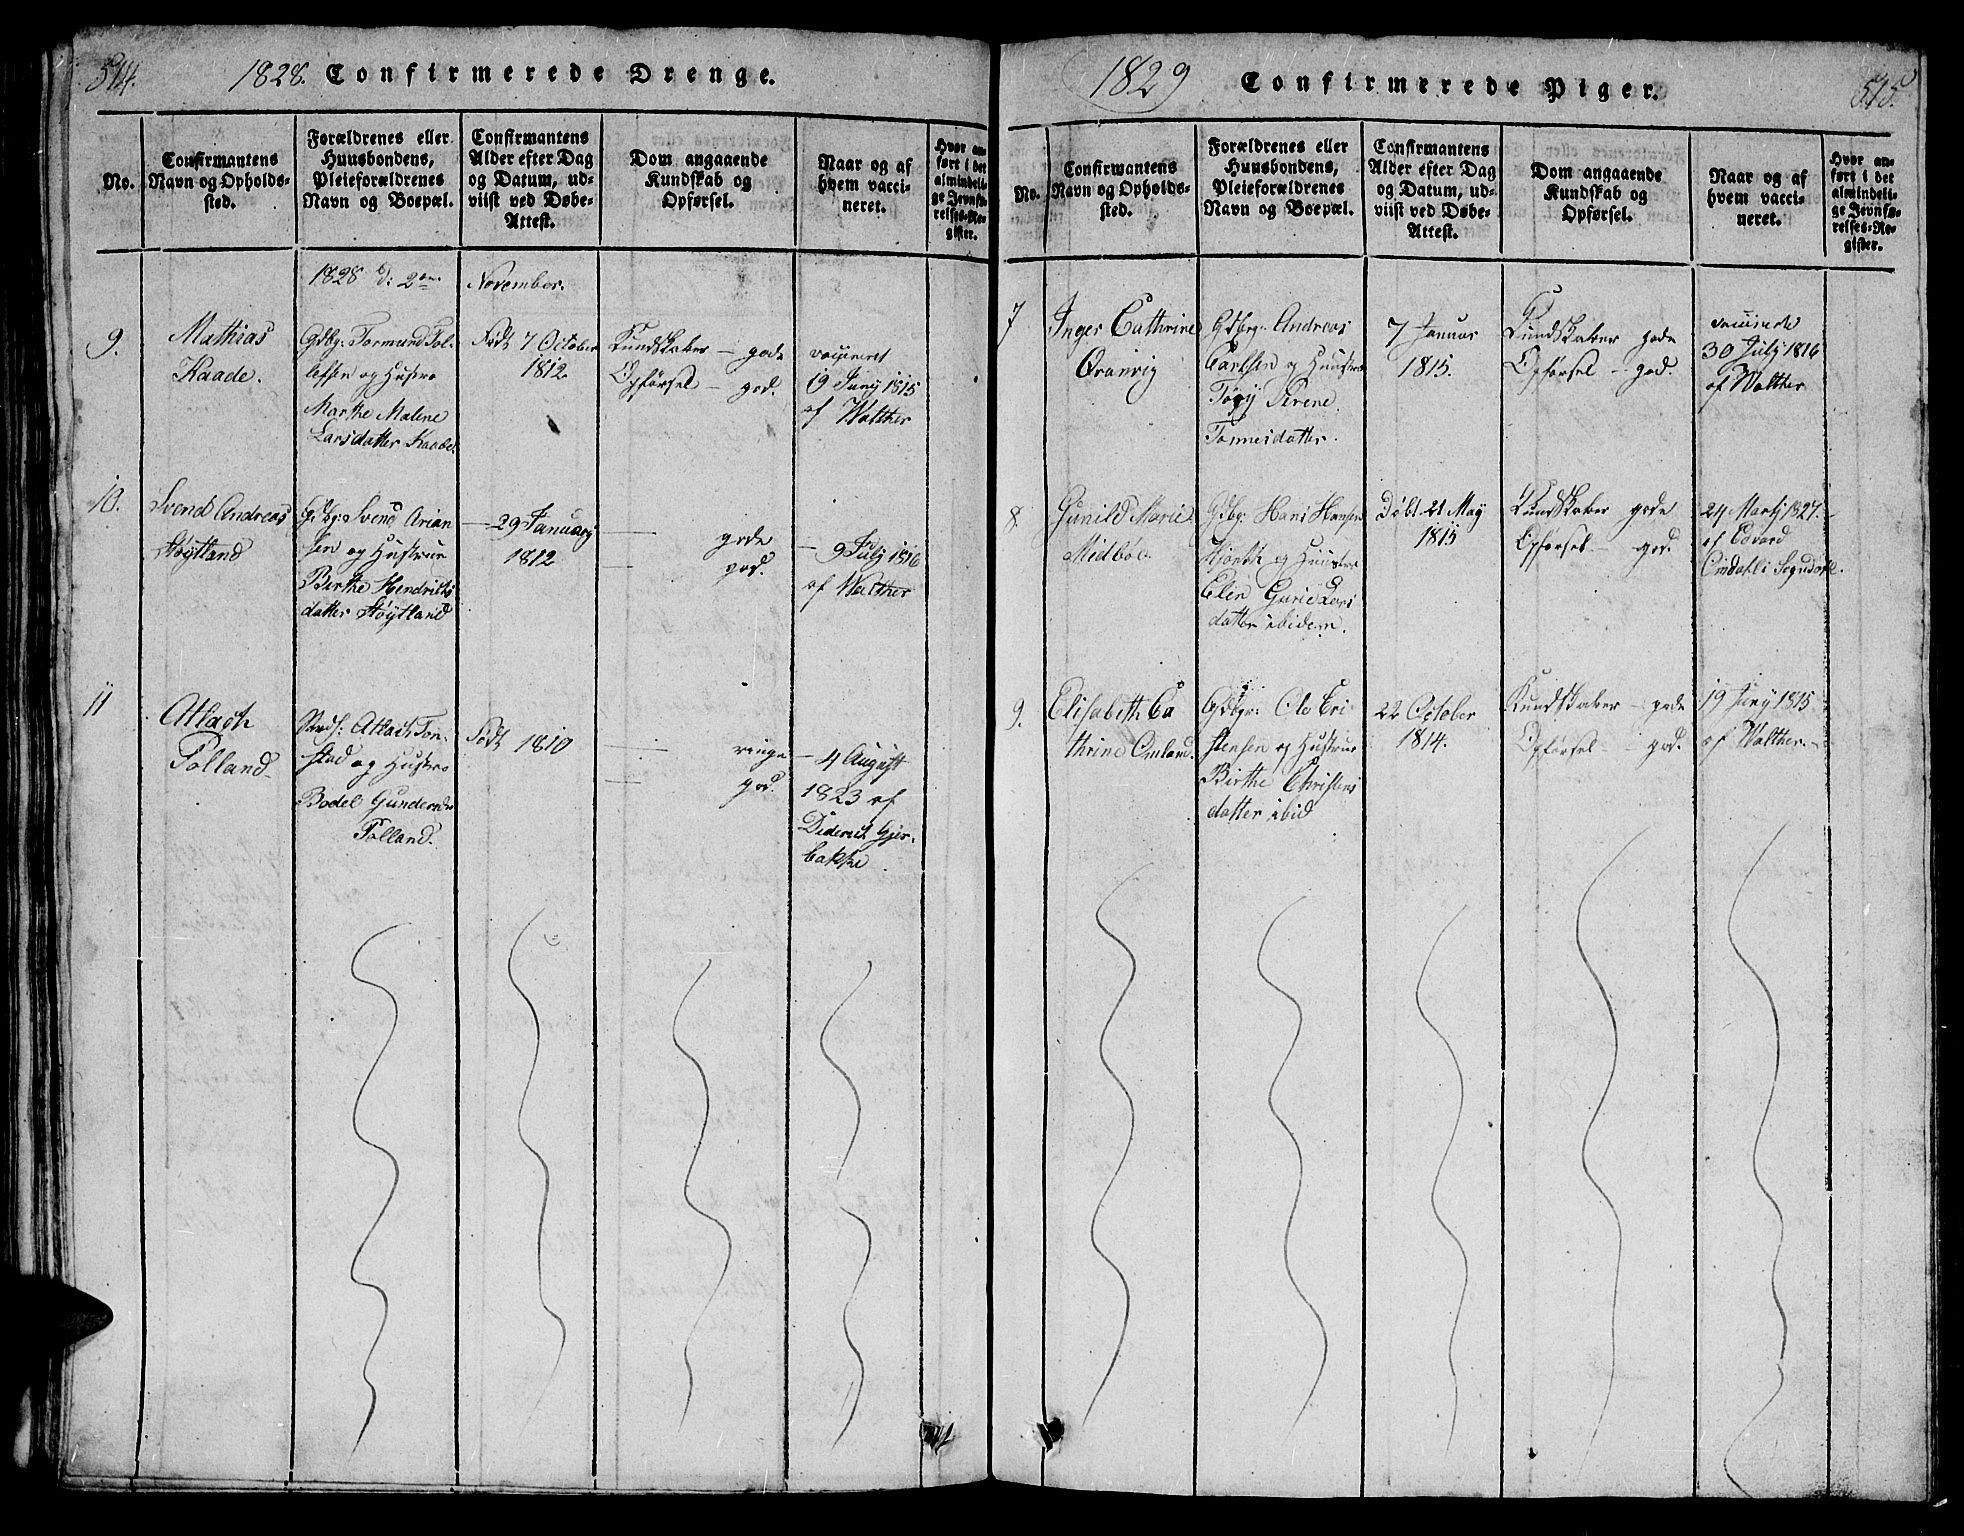 514.
1828. Confirmerede Drenge.
No.
Confirmantens
Navn og Opholds-
sted.
Forældrenes eller
Huusbondens,
Pleieforældrenes
Navn og Boepæl.
Confirmantens
Alder efter Dag
og Datum, ud-
viist ved Døbe-
Attest.
Dom angaaende
Kundskab og
Opførsel.
Naar og af
hvem vacci-
neret.
Hvor an-
ført i det
almindeli-
ge Jevnfø-
relses-Re-
gister.
1828 d: 2den November.
9.
Mathias
Kaade.
Gdbg: Tormund Tol-
lefsen og Hustro
Marthe Malene
Larsdatter Kaade.
Født 7 October
1812.
Kundskaber – gode
Opførsel – god.
vaccineret
19 Juny 1815
af Walther
10.
Svend Andreas
Høytland
Gdbg: Svend Arian
sen og Hustrue
Birthe Hendrichs
datter Høytland
— 29 January
1812
— gode
— god.
— 9 July 1816
af Walther
11
Atlach
Tolland
Atlach Ton-
stad og Hustro
Bodel Gunders
Tolland.
Født 1810
— ringe
— god.
— 4 August
1823 af
Diderich Gjer-
bakke
1829 Confirmerede Piger.
515.
No.
Confirmantens
Navn og Opholds-
sted.
Forældrenes eller
Huusbondens,
Pleieforældrenes
Navn og Boepæl.
Confirmantens
Alder efter Dag
og Datum, ud-
viist ved Døbe-
Attest.
Dom angaaende
Kundskab og
Opførsel.
Naar og af
hvem vacci-
neret.
Hvor an-
ført i det
almindeli-
ge Jevnfø-
relses-Re-
gister.
7
Inger Cathrine
Qvanvig
Gdbrg: Andreas
Carlsen og Huustro
Serene
Tønnesdatter.
7 Januar
1815.
Kundskaber gode
Opførsel – god.
30 July 1816
af Walther
8
Gunild Marie
Midbøe
Gdbg: Hans Hansen
Hjorth og Huustro
Elen Gurie Lars
datter ibidem.
Døbt 21 May
1815
Kundskaber gode
Opførsel – god.
24 Martj 1827.
af Edvard
Omdahl i Segndahl.
9.
Elisabeth Ca
thrine Omland.
Gdbgr: Ole Eri
stensen og Hustrue
Birthe Christens
datter ibid
22 October
1814.
Kundskaber – gode
Opførsel – god.
19 Juny 1815
af Walther.